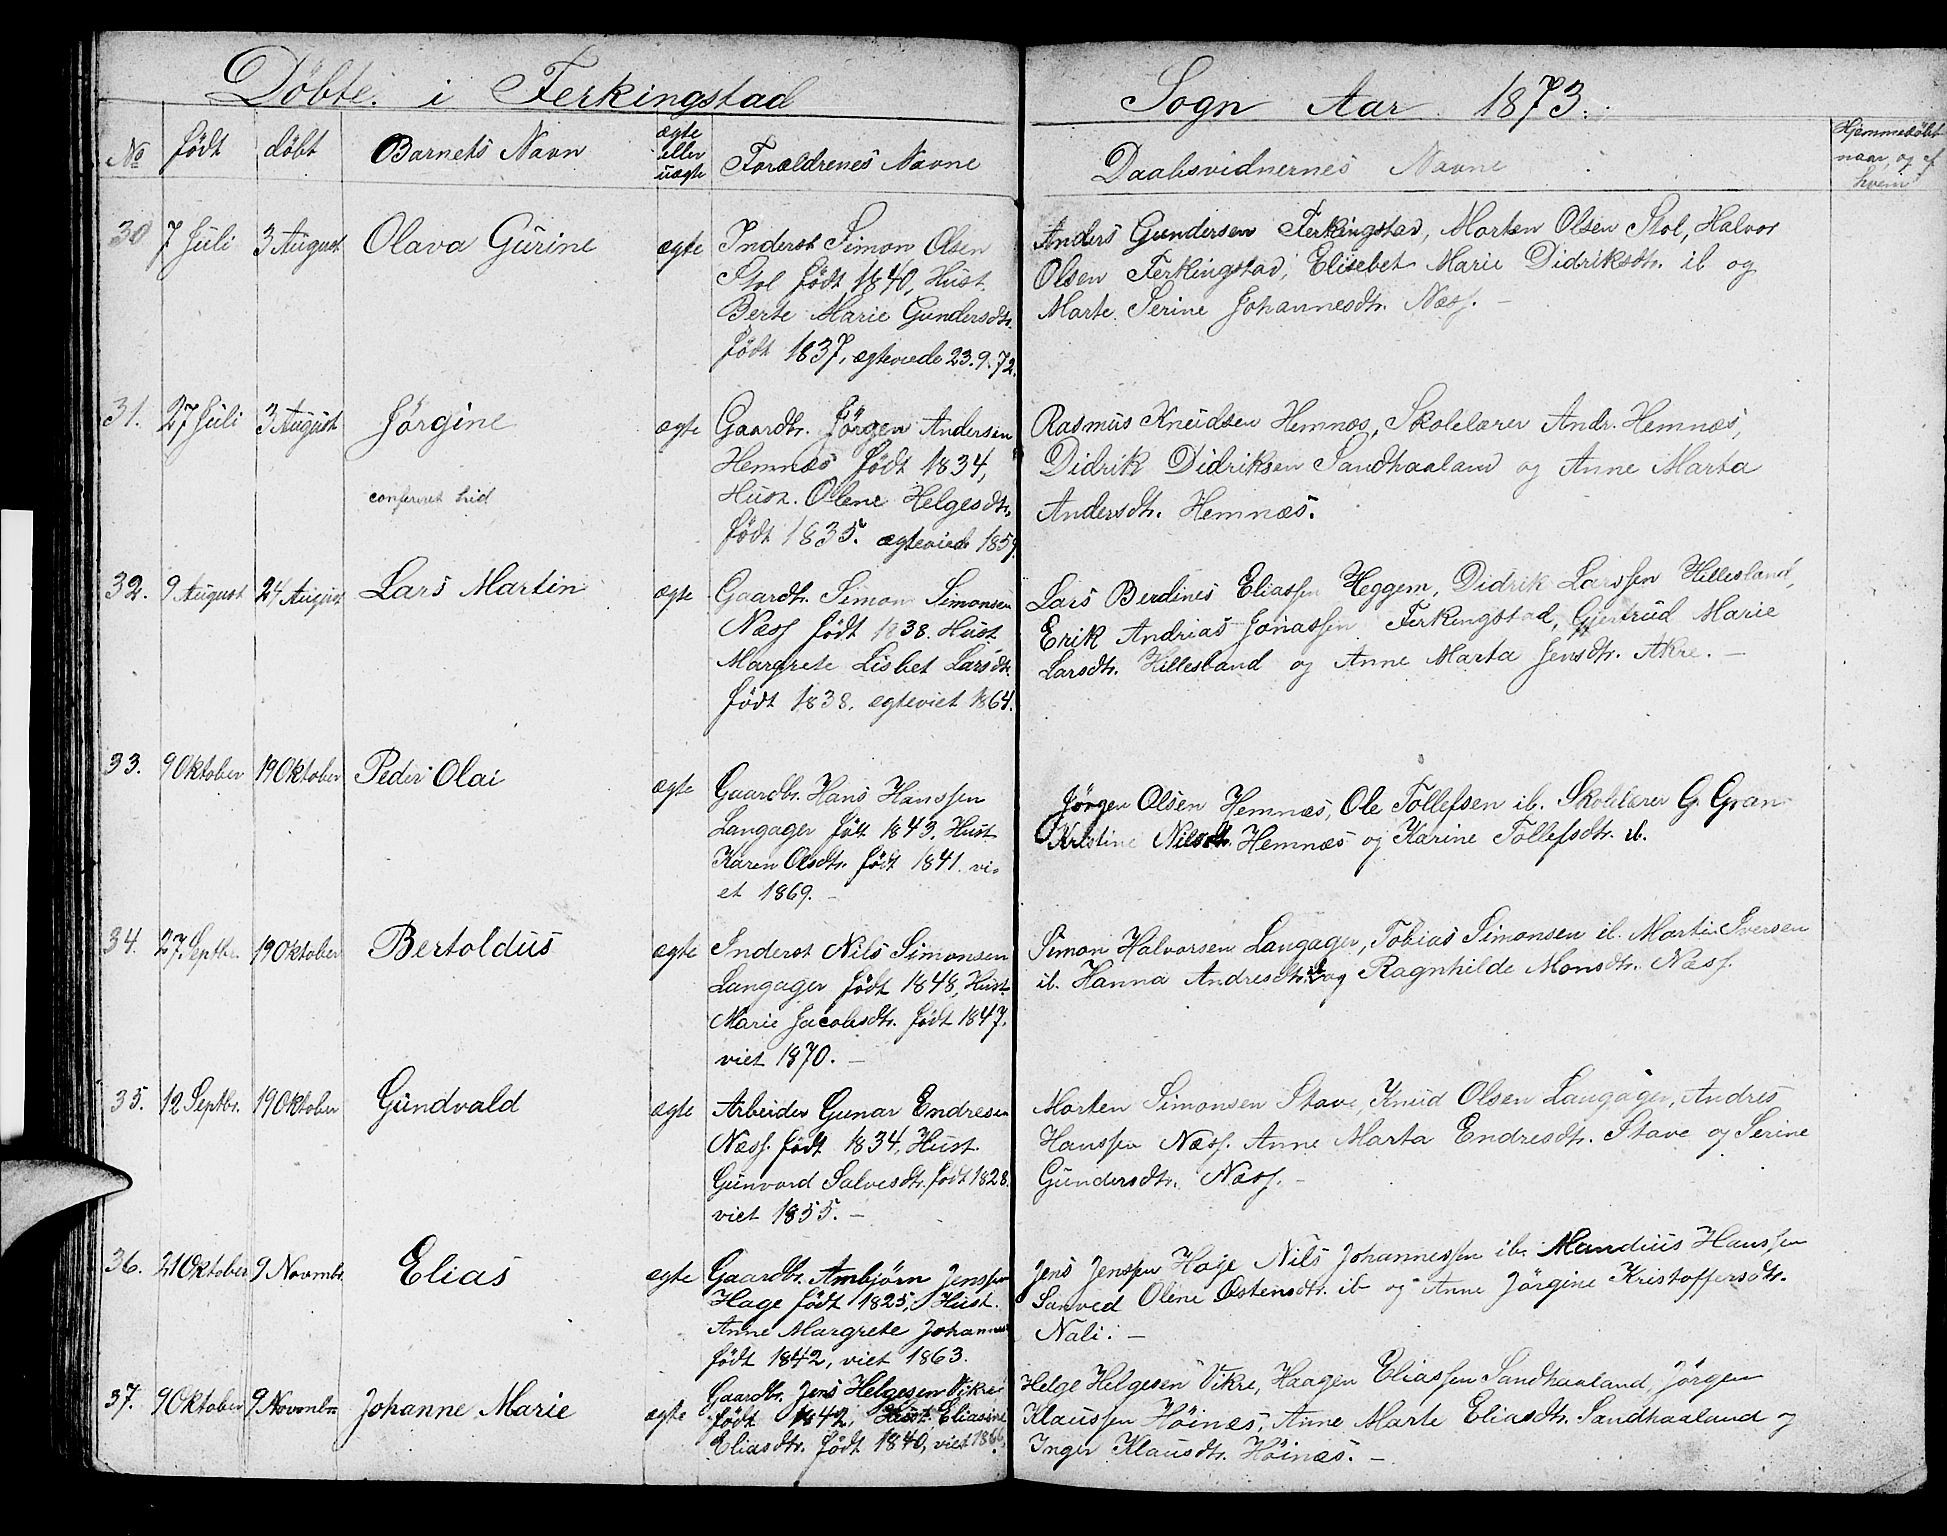 Döbte i Ferkingstad Sogn Aar 1873.
№ födt döbt Barnets Navn ægte eller uægte Forældrenes Navne Daabsvidnernes Navne Hjemmedöbt naar, og af hvem
30 7 Juli 3 August Olava Gurine ægte Inderst Simon Olsen
Stol födt 1840, Hust.
Berte Marie Gundersdtr.
födt 1837, ægteviede 23.9.72.
Anders Gundersen Ferkingstad, Morten Olsen Stol, Halvor
Olsen Ferkingstad, Elisebet Marie Didriksdtr. ib og
Marte Serine Johannesdtr. Næss. –
31. 27 Juli 3 August Jörgine ægte Gaardbr. Jörgen Andersen
confereret hid
Hemnæs födt 1834,
Hust. Olene Helgesdtr.
födt 1835. ægteviede 1859.
Rasmus Knudsen Hemnæs, Skolelærer Andr. Hemnæs,
Didrik Didriksen Sandhaaland og Anne Marta
Andersdtr. Hemnæs.
32. 9 August 24 August Lars Martin ægte Gaardbr. Simon Simonsen
Næss födt 1838. Hust
Margrete Lisbet Larsdtr.
födt 1838. ægteviet 1864.
Lars Berdines Eliassen Heggem, Didrik Larssen Hillesland,
Erik Andrias Jonassen Ferkingstad, Gjertrud Marie
Larsdtr. Hillesland og Anne Marta Jensdtr. Akre. –
33. 9 Oktober 19 Oktober Peder Olai ægte Gaardbr. Hans Hanssen
Langager föt 1843, Hust
Karen Olsdtr. födt 1841. vi-
et 1869. –
Jörgen Olsen Hemnæs, Ole Tollefsen ib. Skolelærer G. Gran
Kristine Nilsdtr. Hemnæs og Karine Tollefsdtr. ib.
34. 27 Septbr. 19 Oktober Bertoldus ægte Inderst Nils Simonsen
Langager födt 1848, Hust
Marie Jacobsdtr. födt 1847.
viet 1870. –
Simon Halvorsen Langager, Tobias Simonsen ib. Martin Iversen
ib. Hanna Andresdtr. ib og Ragnhilde Monsdtr. Næss.
35. 12 Septbr. 19 Oktober Gundvald ægte Arbeider Gunar Endresen
Næss. födt 1834, Hust.
Gunvord Salvesdtr. födt 1828.
viet 1855. –
Morten Simonsen Stave, Knud Olsen Langager, Andres
Hanssen Næss. Anne Marta Endresdtr. Stave og Serine
Gundersdtr. Næss. –
36. 21 Oktober 9 Novmbr. Elias ægte Gaardbr. Ambjörn Jenssen
Hage födt 1825, Hust.
Anne Margrete Johannes
födt 1842, viet 1863.
Jens Jenssen Hage Nils Johannessen ib. Mandius Hanssen
Sanved Olene Östensdtr. ib og Anne Jörgine Kristoffersdtr.
Nali. –
37. 9 Oktober 9 Novembr Johanne Marie ægte Gaardbr. Jens Helgesen Vikre
födt 1842, Hust. Eliasine
Eliasdtr. födt 1840, viet 1866.
Helge Helgesen Vikre, Haagen Eliassen Sandhaaland, Jörgen
Klaussen Höinæs, Anne Marte Eliasdtr. Sandhaaland og
Inger Klausdtr. Höinæs. –